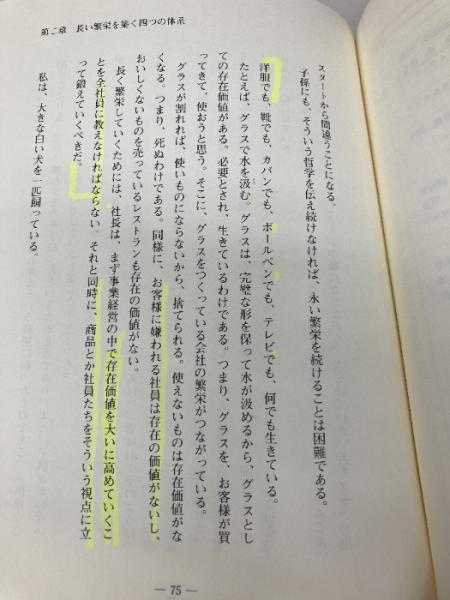 第二章 長い繁栄を築く四つの体系
スタートから間違うことになる。
子孫にも、そういう哲学を伝え続けなければ、永い繁栄を続けることは困難である。
洋服でも、靴でも、カバンでも、ボールペンでも、テレビでも、何でも生きている。
たとえば、グラスで水を汲む。グラスは、完璧な形を保って水が汲めるから、グラスとし
ての存在価値がある。必要とされ、生きているわけである。つまり、グラスを、お客様が買
ってきて、使おうと思う。そこに、グラスをつくっている会社の繁栄がつながっている。
グラスが割れれば、使いものにならないから、捨てられる。使えないものは存在価値がな
くなる。つまり、死ぬわけである。同様に、お客様に嫌われる社員は存在の価値がないし、
おいしくないものを売っているレストランも存在の価値がない。
長く繁栄していくためには、社長は、まず事業経営の中で存在価値を大いに高めていくこ
とを全社員に教えなければならない。それと同時に、商品とか社員たちをそういう視点に立
って鍛えていくべきだ。
私は、大きな白い犬を一匹飼っている。
— 75 —